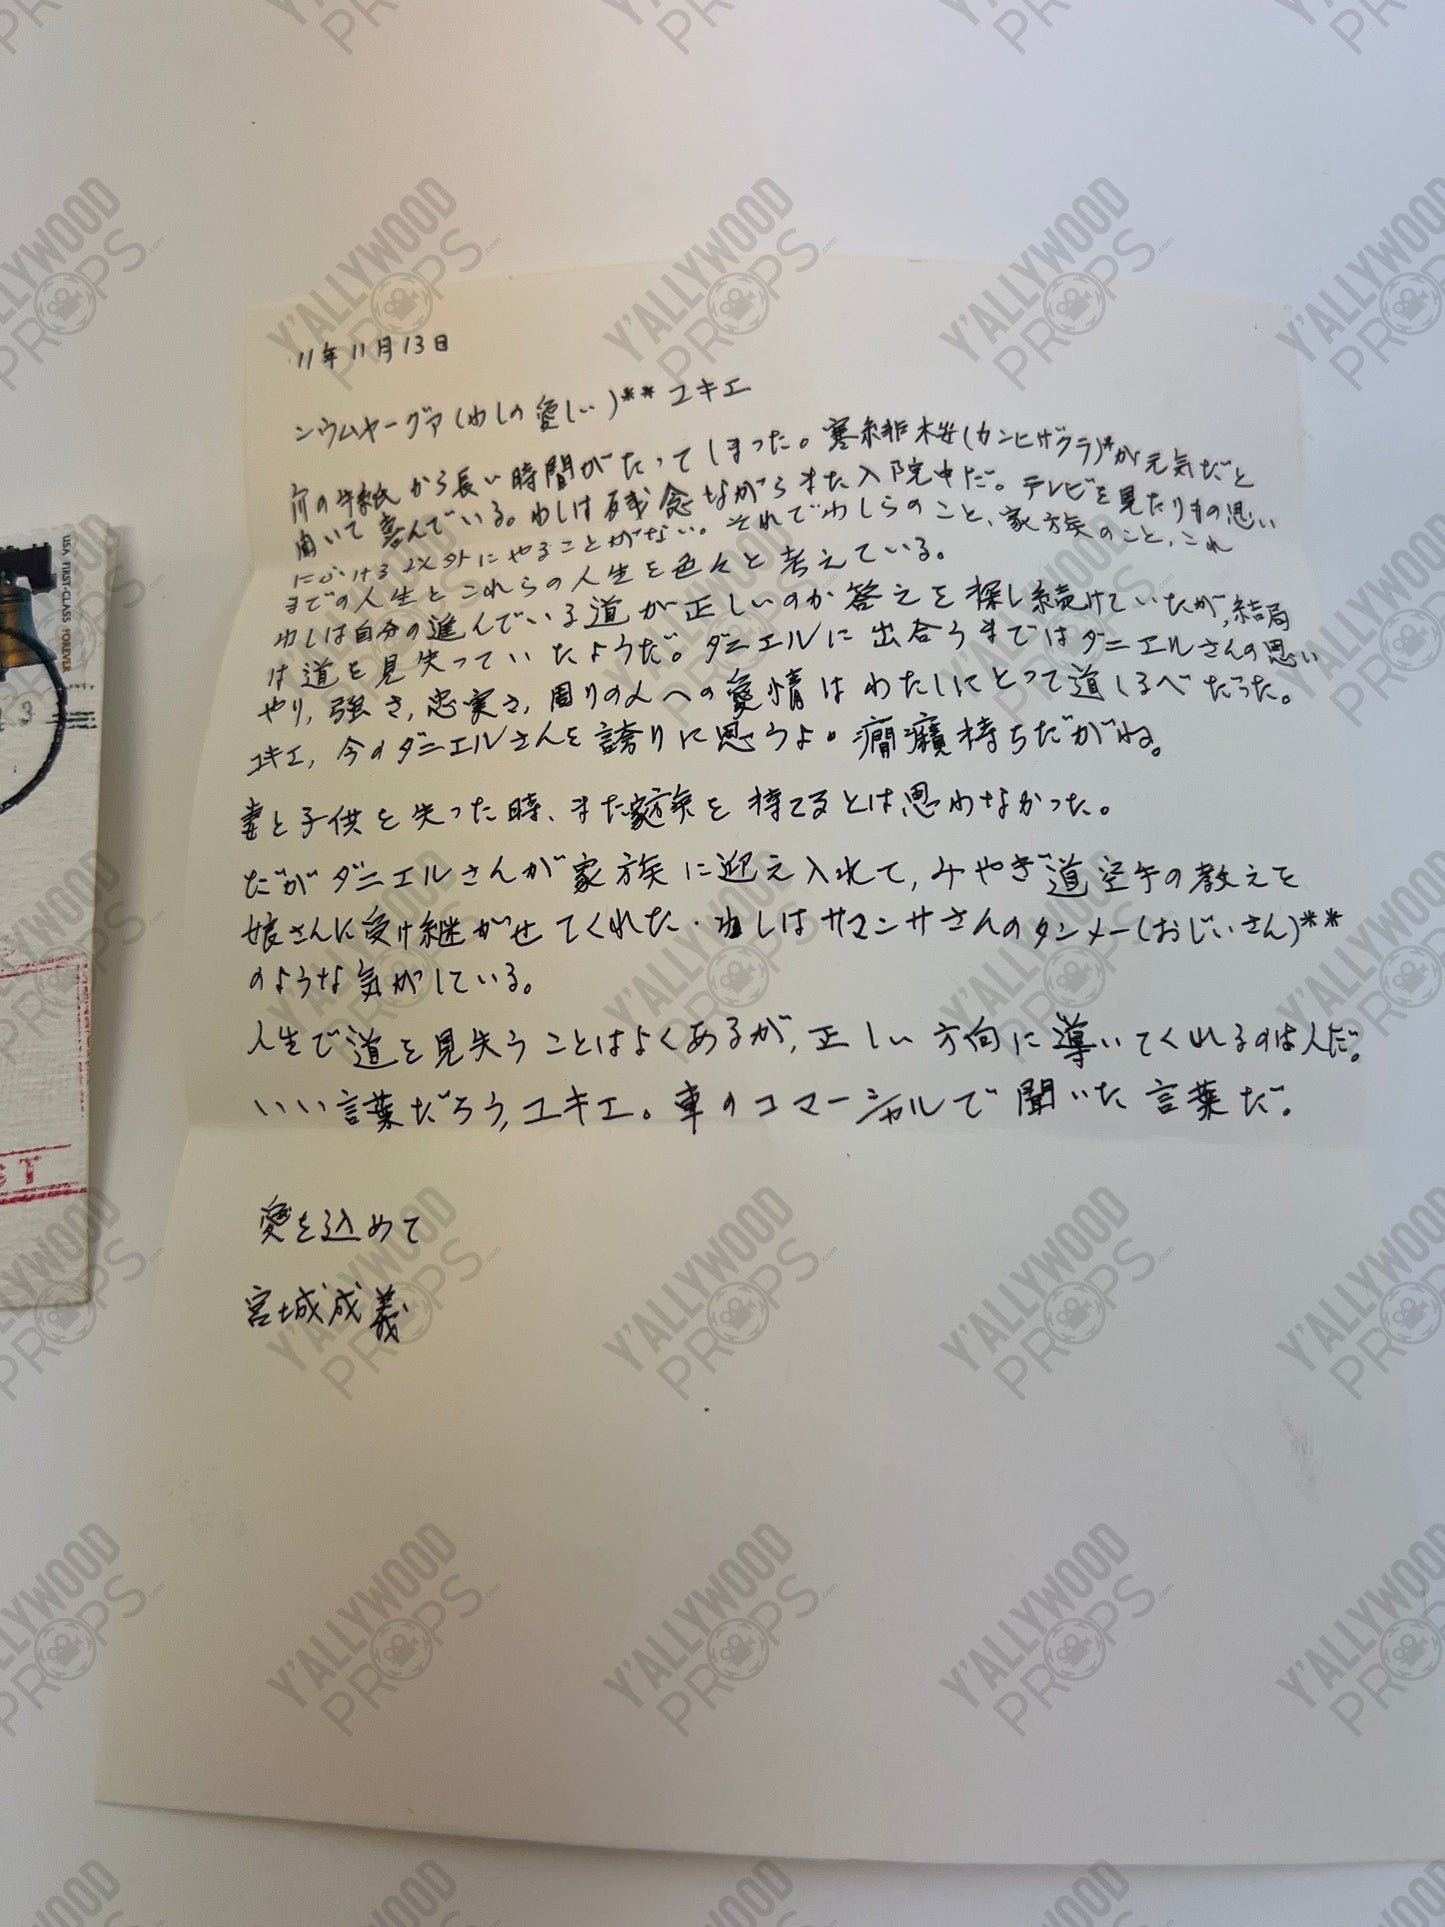 '11年11月13日
シウムヤーグァ(わしの愛しい)** ユキエ
前の手紙から長い時間がたってしまった。寒緋桜(カンヒザクラ)*が元気だと
聞いて喜んでいる。わしは残念ながらまた入院中だ。テレビを見たりもの思い
にふける以外にやることがない。それでわしらのこと、家族のこと、これ
までの人生とこれらの人生を色々と考えている。
わしは自分の進んでいる道が正しいのか答えを探し続けていたが、結局
は道を見失っていたようだ。ダニエルに出合うまではダニエルさんの思い
やり, 強さ, 忠実さ, 周りの人への愛情はわたしにとって道しるべだった。
ユキエ, 今のダニエルさんを誇りに思うよ。癇癪持ちだがね。
妻と子供を失った時、また家族を持てるとは思わなかった。
だがダニエルさんが家族に迎え入れて, みやぎ道空手の教えを
娘さんに受け継がせてくれた。わしはサマンサさんのタンメー(おじいさん)**
のような気がしている。
人生で道を見失うことはよくあるが, 正しい方向に導いてくれるのは人だ。
いい言葉だろう, ユキエ。車のコマーシャルで聞いた言葉だ。
愛を込めて
宮城成義
USA FIRST-CLASS FOREVER
ST
Y'ALLYWOOD PROPS.com